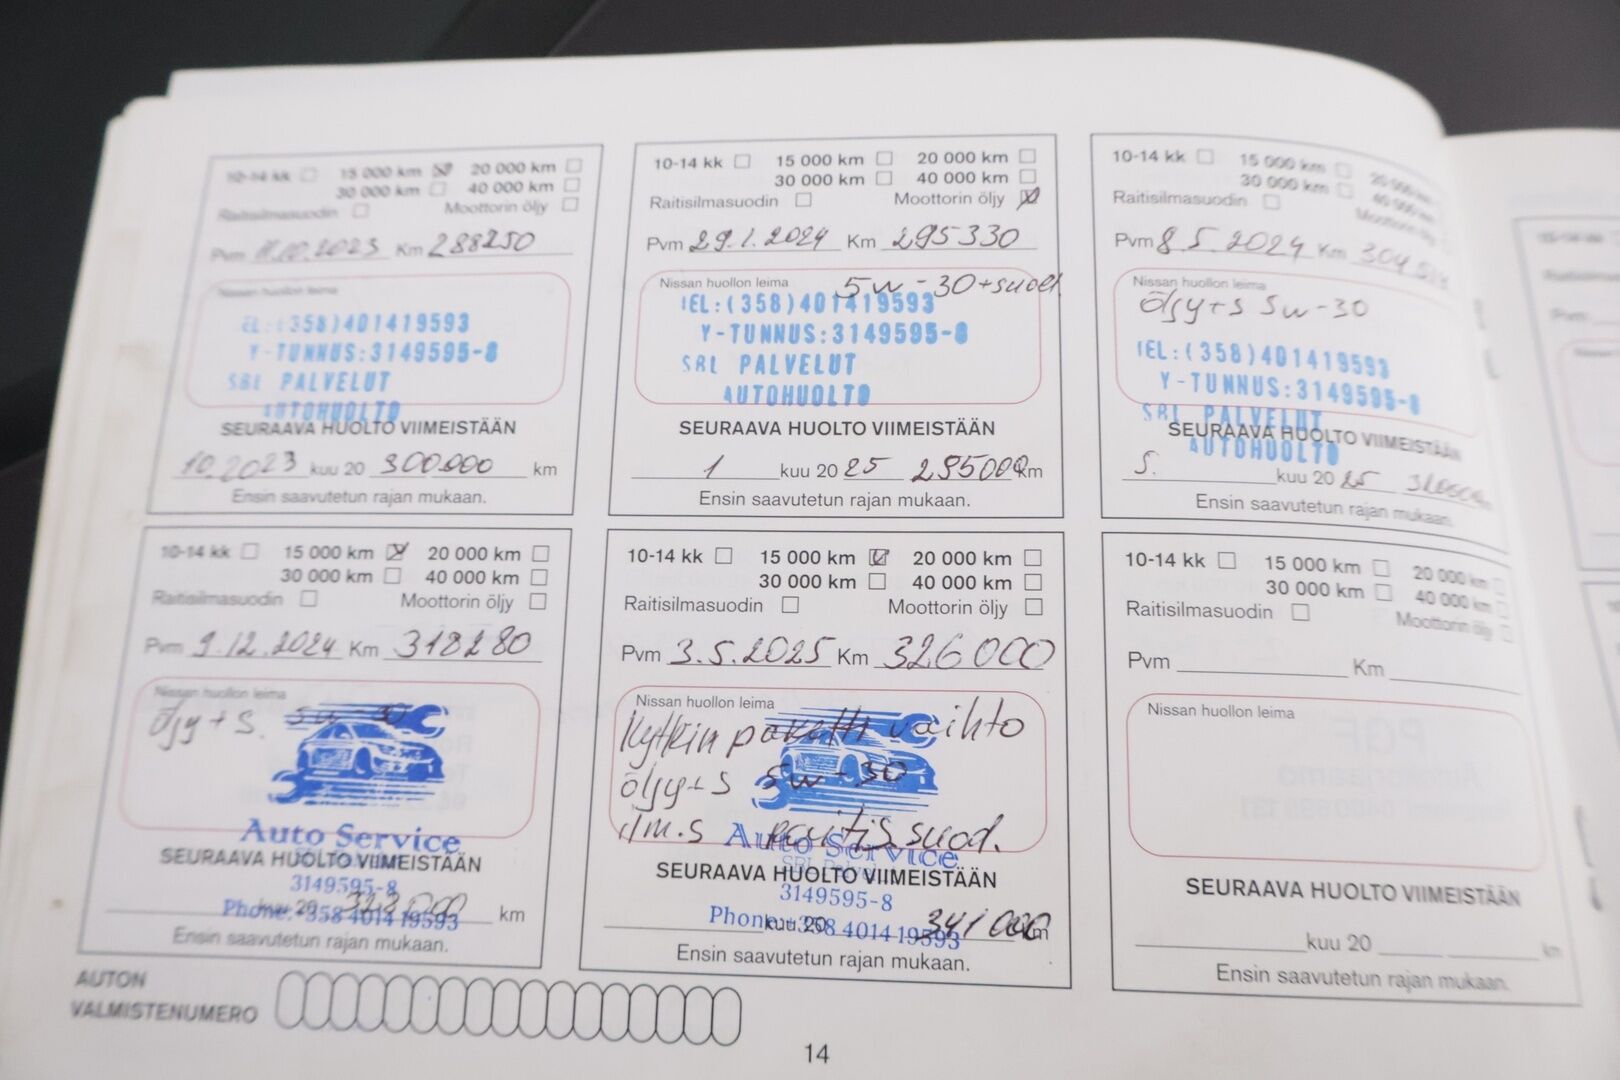 10-14 kk 15 000 km 20 000 km
30 000 km 40 000 km
Raitisilmasuodin Moottorin öljy
Pvm 11.10.2023 Km 288250
Nissan huollon leima
EL:(358)401419593
Y-TUNNUS:3149595-8
SBL PALVELUT
AUTOHUOLTO
SEURAAVA HUOLTO VIIMEISTÄÄN
10.2023 kuu 20 300.000 km
Ensin saavutetun rajan mukaan.
10-14 kk 15 000 km 20 000 km
30 000 km 40 000 km
Raitisilmasuodin Moottorin öljy
Pvm 29.1.2024 Km 295330
Nissan huollon leima
5w-30+suod.
TEL:(358)401419593
Y-TUNNUS:3149595-8
SBL PALVELUT
AUTOHUOLTO
SEURAAVA HUOLTO VIIMEISTÄÄN
1 kuu 20 25 295000 km
Ensin saavutetun rajan mukaan.
10-14 kk 15 000 km 20 000 km
30 000 km 40 000 km
Raitisilmasuodin Moottorin öljy
Pvm 8.5.2024 Km
Nissan huollon leima
öljy+s 5w-30
TEL:(358)401419593
Y-TUNNUS:3149595-8
SBL PALVELUT
AUTOHUOLTO
SEURAAVA HUOLTO VIIMEISTÄÄN
5. kuu 20 25
Ensin saavutetun rajan mukaan.
10-14 kk 15 000 km 20 000 km
30 000 km 40 000 km
Raitisilmasuodin Moottorin öljy
Pvm 9.12.2024 Km 318280
Nissan huollon leima
öljy+s. 5w-30
Auto Service
SEURAAVA HUOLTO VIIMEISTÄÄN
3149595-8
kuu 20 km
Phone: +358 401419593
Ensin saavutetun rajan mukaan.
10-14 kk 15 000 km 20 000 km
30 000 km 40 000 km
Raitisilmasuodin Moottorin öljy
Pvm 3.5.2025 Km 326000
Nissan huollon leima
Kytkin paketti vaihto
öljy+s 5w-30
ilm.s raitis suod.
Auto Service
SBL Palvelut
SEURAAVA HUOLTO VIIMEISTÄÄN
3149595-8
kuu 20 341000 km
Phone: +358 401419593
Ensin saavutetun rajan mukaan.
10-14 kk 15 000 km 20 000 km
30 000 km 40 000 km
Raitisilmasuodin Moottorin öljy
Pvm Km
Nissan huollon leima
SEURAAVA HUOLTO VIIMEISTÄÄN
kuu 20 km
Ensin saavutetun rajan mukaan.
AUTON
VALMISTENUMERO
14